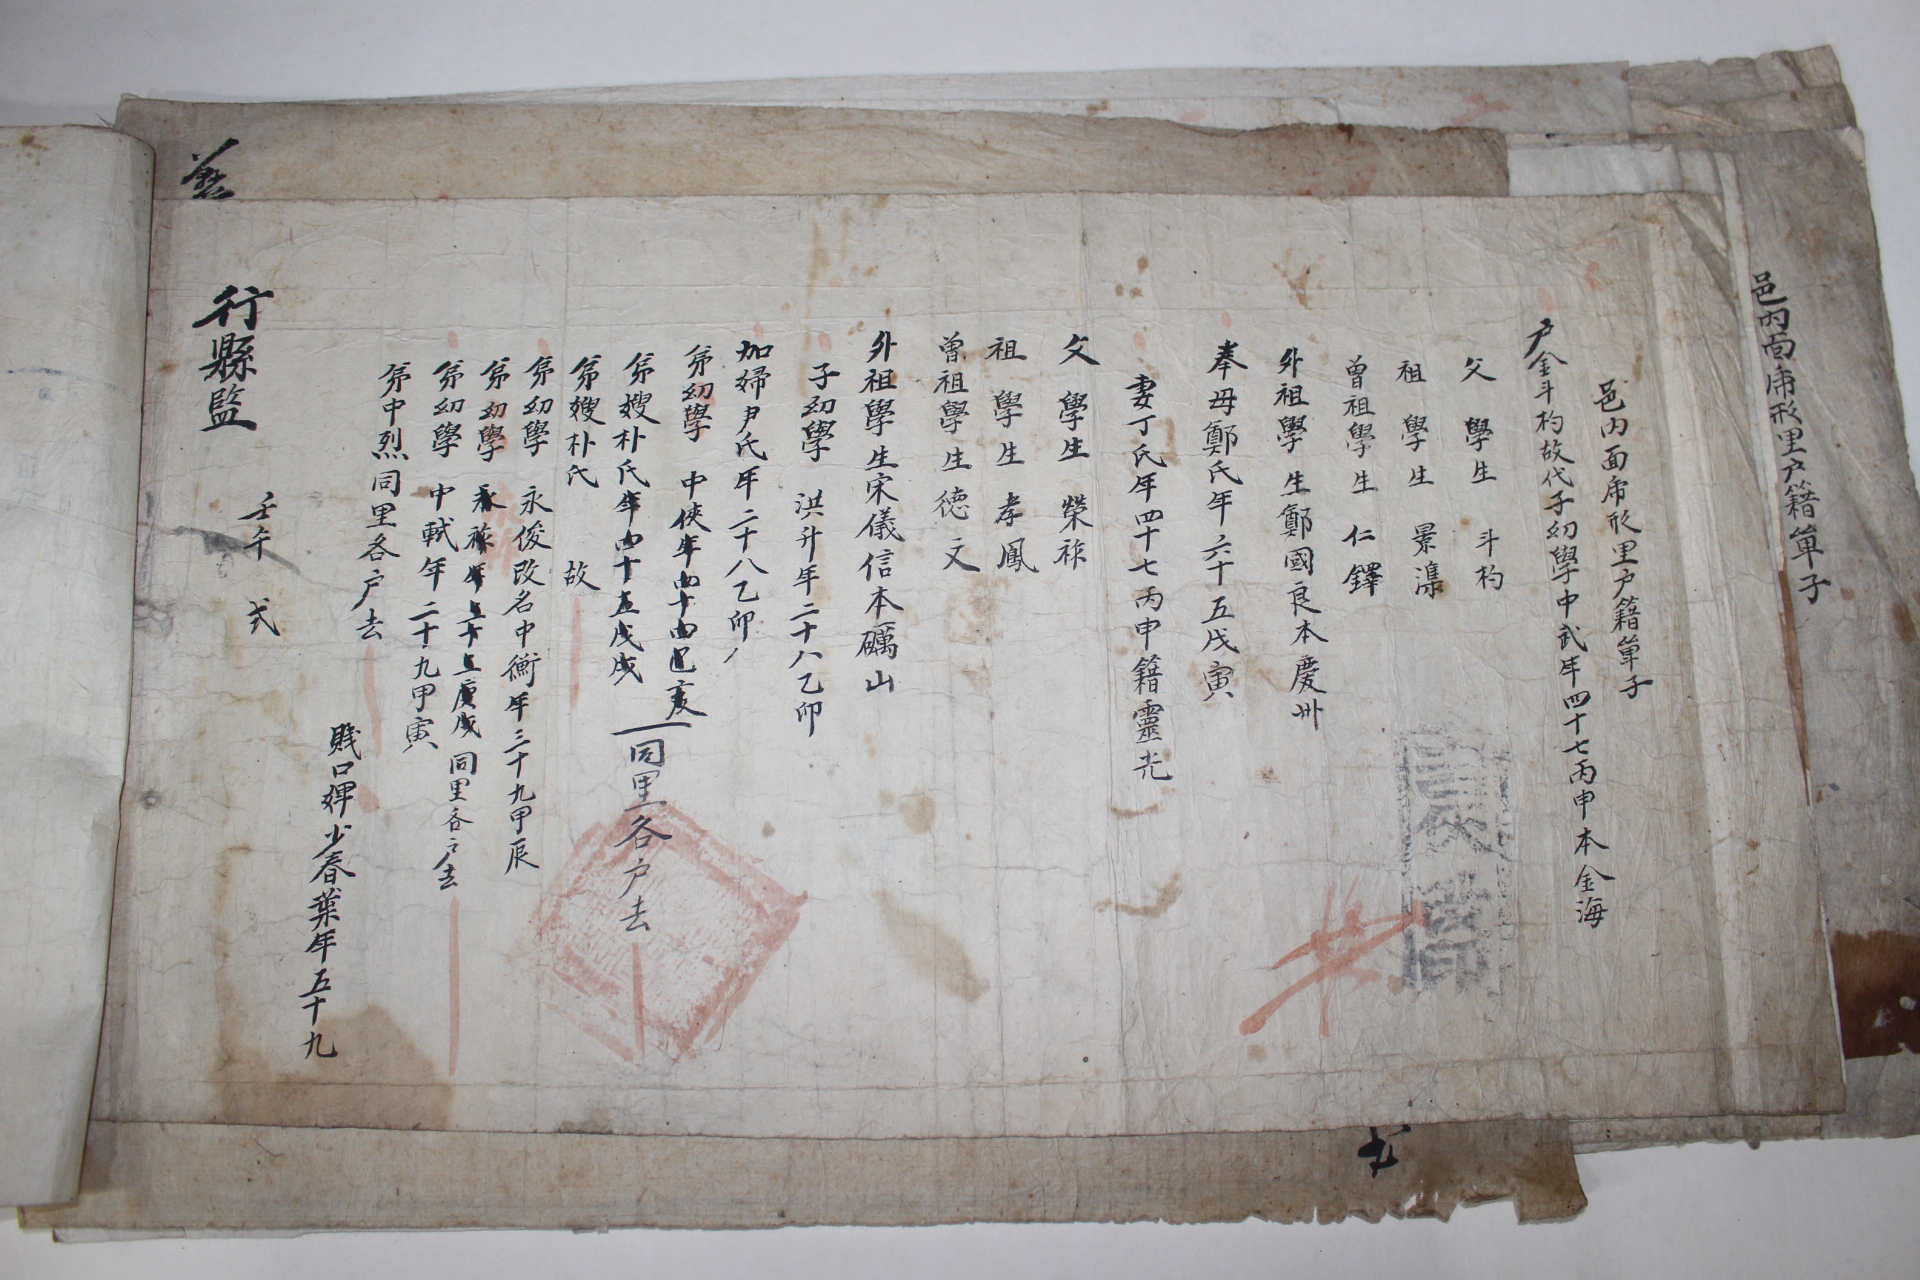 邑內面席形里户籍單子
邑内面席形里户籍單子
户金斗杓故代子幼學中武年四十七丙申本金海
父學生斗杓
祖學生景
曾祖學生仁鐸
外祖學生鄭國良本慶州
奉母鄭氏年六十五戊寅
妻丁氏年四十七丙申籍靈光
父學生榮祚
祖學生孝鳳
曾祖學生德文
外祖學生宋儀信本礪山
子幼學洪升年二十八乙卯
加婦尹氏年二十八乙卯
弟幼學中俠年四十四己亥
弟嫂朴氏年四十五戊戌
同里各户去
弟嫂朴氏故
弟幼學永俊改名中衡年三十九甲辰
弟幼學永祚年三十三庚戌同里各户去
弟幼學中軾年二十九甲寅
弟中烈同里各户去
賤口婢少春葉年五十九
壬午式
行縣監